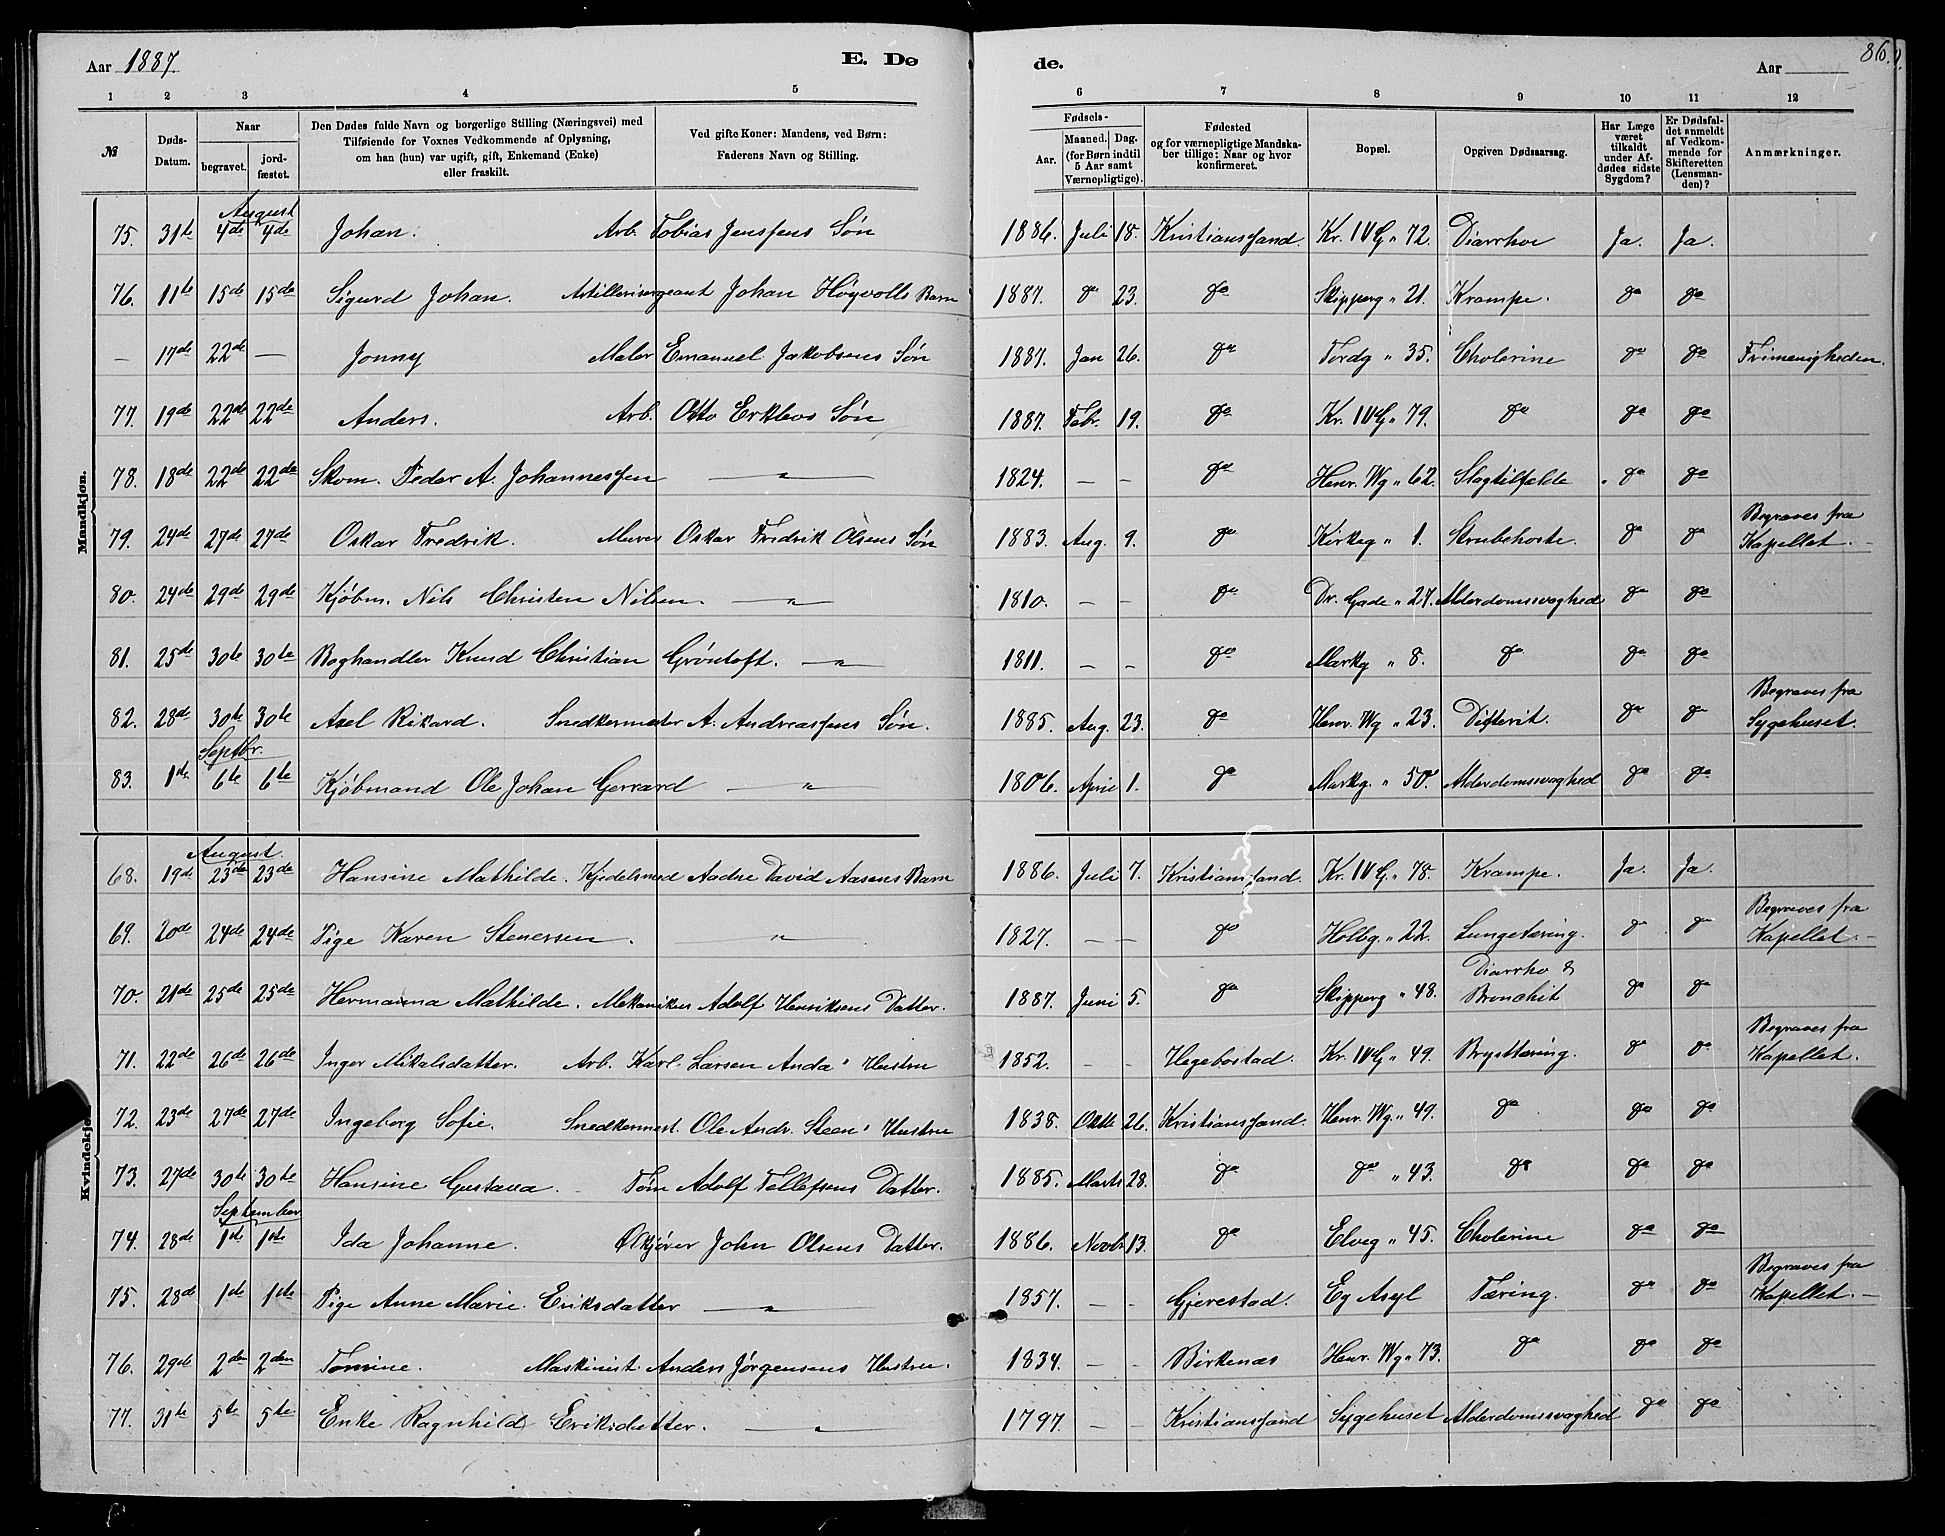 Aar 1887. E. Dø de. Aar 86.
1 2 3 4 5 6 7 8 9 10 11 12
№ Døds-Datum. Naar begravet. jordfæstet. Den Dødes fulde Navn og borgerlige Stilling (Næringsvei) med Tilføiende for Voxnes Vedkommende af Oplysning, om han (hun) var ugift, gift, Enkemand (Enke) eller fraskilt. Ved gifte Koner: Mandens, ved Børn: Faderens Navn og Stilling. Fødsels- Aar. Maaned. Dag. (for Børn indtil 5 Aar samt Værnepligtige). Fødested og for værnepligtige Mandskaber tillige: Naar og hvor konfirmeret. Bopæl. Opgiven Dødsaarsag. Har Læge været tilkaldt under Afdødes sidste Sygdom? Er Dødsfaldet anmeldt af Vedkommende for Skifteretten (Lensmanden)? Anmærkninger.
Mandkjøn.
August
75. 31te 4de 4de Johan. Arb. Tobias Jensens Søn 1886. Juli 18. Kristianssand. Kr. IV G " 72. Diarrhoe Ja. Ja.
76. 11te 15de 15de Sigurd Johan. Artillerisergeant Johan Høyvolls Barn 1887. do 23. do Skipperg " 21. Krampe. do do
— 17de 22de — Jonny Maler Emanuel Jakobsens Søn 1887. Jan 26. do Tordg " 35. Cholerine do do Frimenigheden.
77. 19de 22de 22de Anders. Arb. Otto Erklevs Søn 1887. Febr. 19. do Kr. IV G " 79. do do do
78. 18de 22de 22de Skom. Peder A. Johannessen — " — 1824. – – do Henr. Wg " 62. Slagtilfælde do do
79. 24de 27de 27de Oskar Fredrik. Murer Oskar Fredrik Olsens Søn 1883. Aug. 9. do Kirkeg " 1. Strubehoste. do do Begraves fra Kapellet. –
80. 24de 29de 29de Kjøbm. Nils Christen Nilsen. — " — 1810. – – do Dr. Gade " 27. Alderdomssvaghed do do
81. 25de 30te 30te Boghandler Knud Christian Grøntoft. — " — 1811. – – do Markg " 8. do do do
82. 28de 30te 30te Axel Rikard. Snedkermester A. Andreassens Søn. 1885. Aug. 23. do Henr. Wg " 23. Difterit. do do Begraves fra Sygehuset.
Septbr.
83. 1te 6te 6te Kjøbmand Ole Johan Gerrard — " — 1806. April 1. do Markg. " 50. Alderdomssvaghed do do
Kvindekjøn.
August.
68. 19de 23de 23de Hansine Mathilde. Kjedelsmed Aadne David Aasens Barn 1886. Juli 7. Kristianssand. Kr. IV G. " 78. Krampe. Ja. Ja.
69. 20de 24de 24de Pige Karen Stenersen. " 1827. – – do Holbg. " 22. Lungetæring. do do Begraves fra Kapellet. –
70. 21de 25de 25de Hermanna Mathilde. Mekaniker Adolf Henriksens Datter. 1887. Juni 5. do Skipperg " 48. Diarrho & Bronchit do do
71. 22de 26de 26de Inger Mikalsdatter. Arb. Karl Larsen Anda's Hustru 1852. – – Hegebostad. Kr. IV G " 49. Brysttæring. do do Begraves fra Kapellet.
72. 23de 27de 27de Ingeborg Sofie. Snedkermest. Ole Andr. Steen's Hustru 1838. Oktb 26. Kristianssand. Henr. Wg. " 49. do do do
73. 27de 30te 30te Hansine Gustava. – Tøm Adolf Tellefsens Datter. 1885. Marts 28. do do " 43. do do do
September
74. 28de 1ste 1ste Ida Johanne. Ølkjører John Olsens Datter. 1886. Novbr 13. do Elveg " 45. Cholerine do do
75. 28de 1ste 1ste Pige Anne Marie Eriksdatter — " — 1857. – – Gjerestad. Eg Asyl Tæring. do do Begraves fra Kapellet. –
76. 29de 2den 2den Tomine. Maskinist Anders Jørgensens Hustru. 1834. – – Birkenæs Henr. Wg " 73. do do do
77. 31te 5te 5te Enke Ragnhild Eriksdatter. — " — 1797. – – Kristianssand Sygehuset Alderdomssvaghed do do